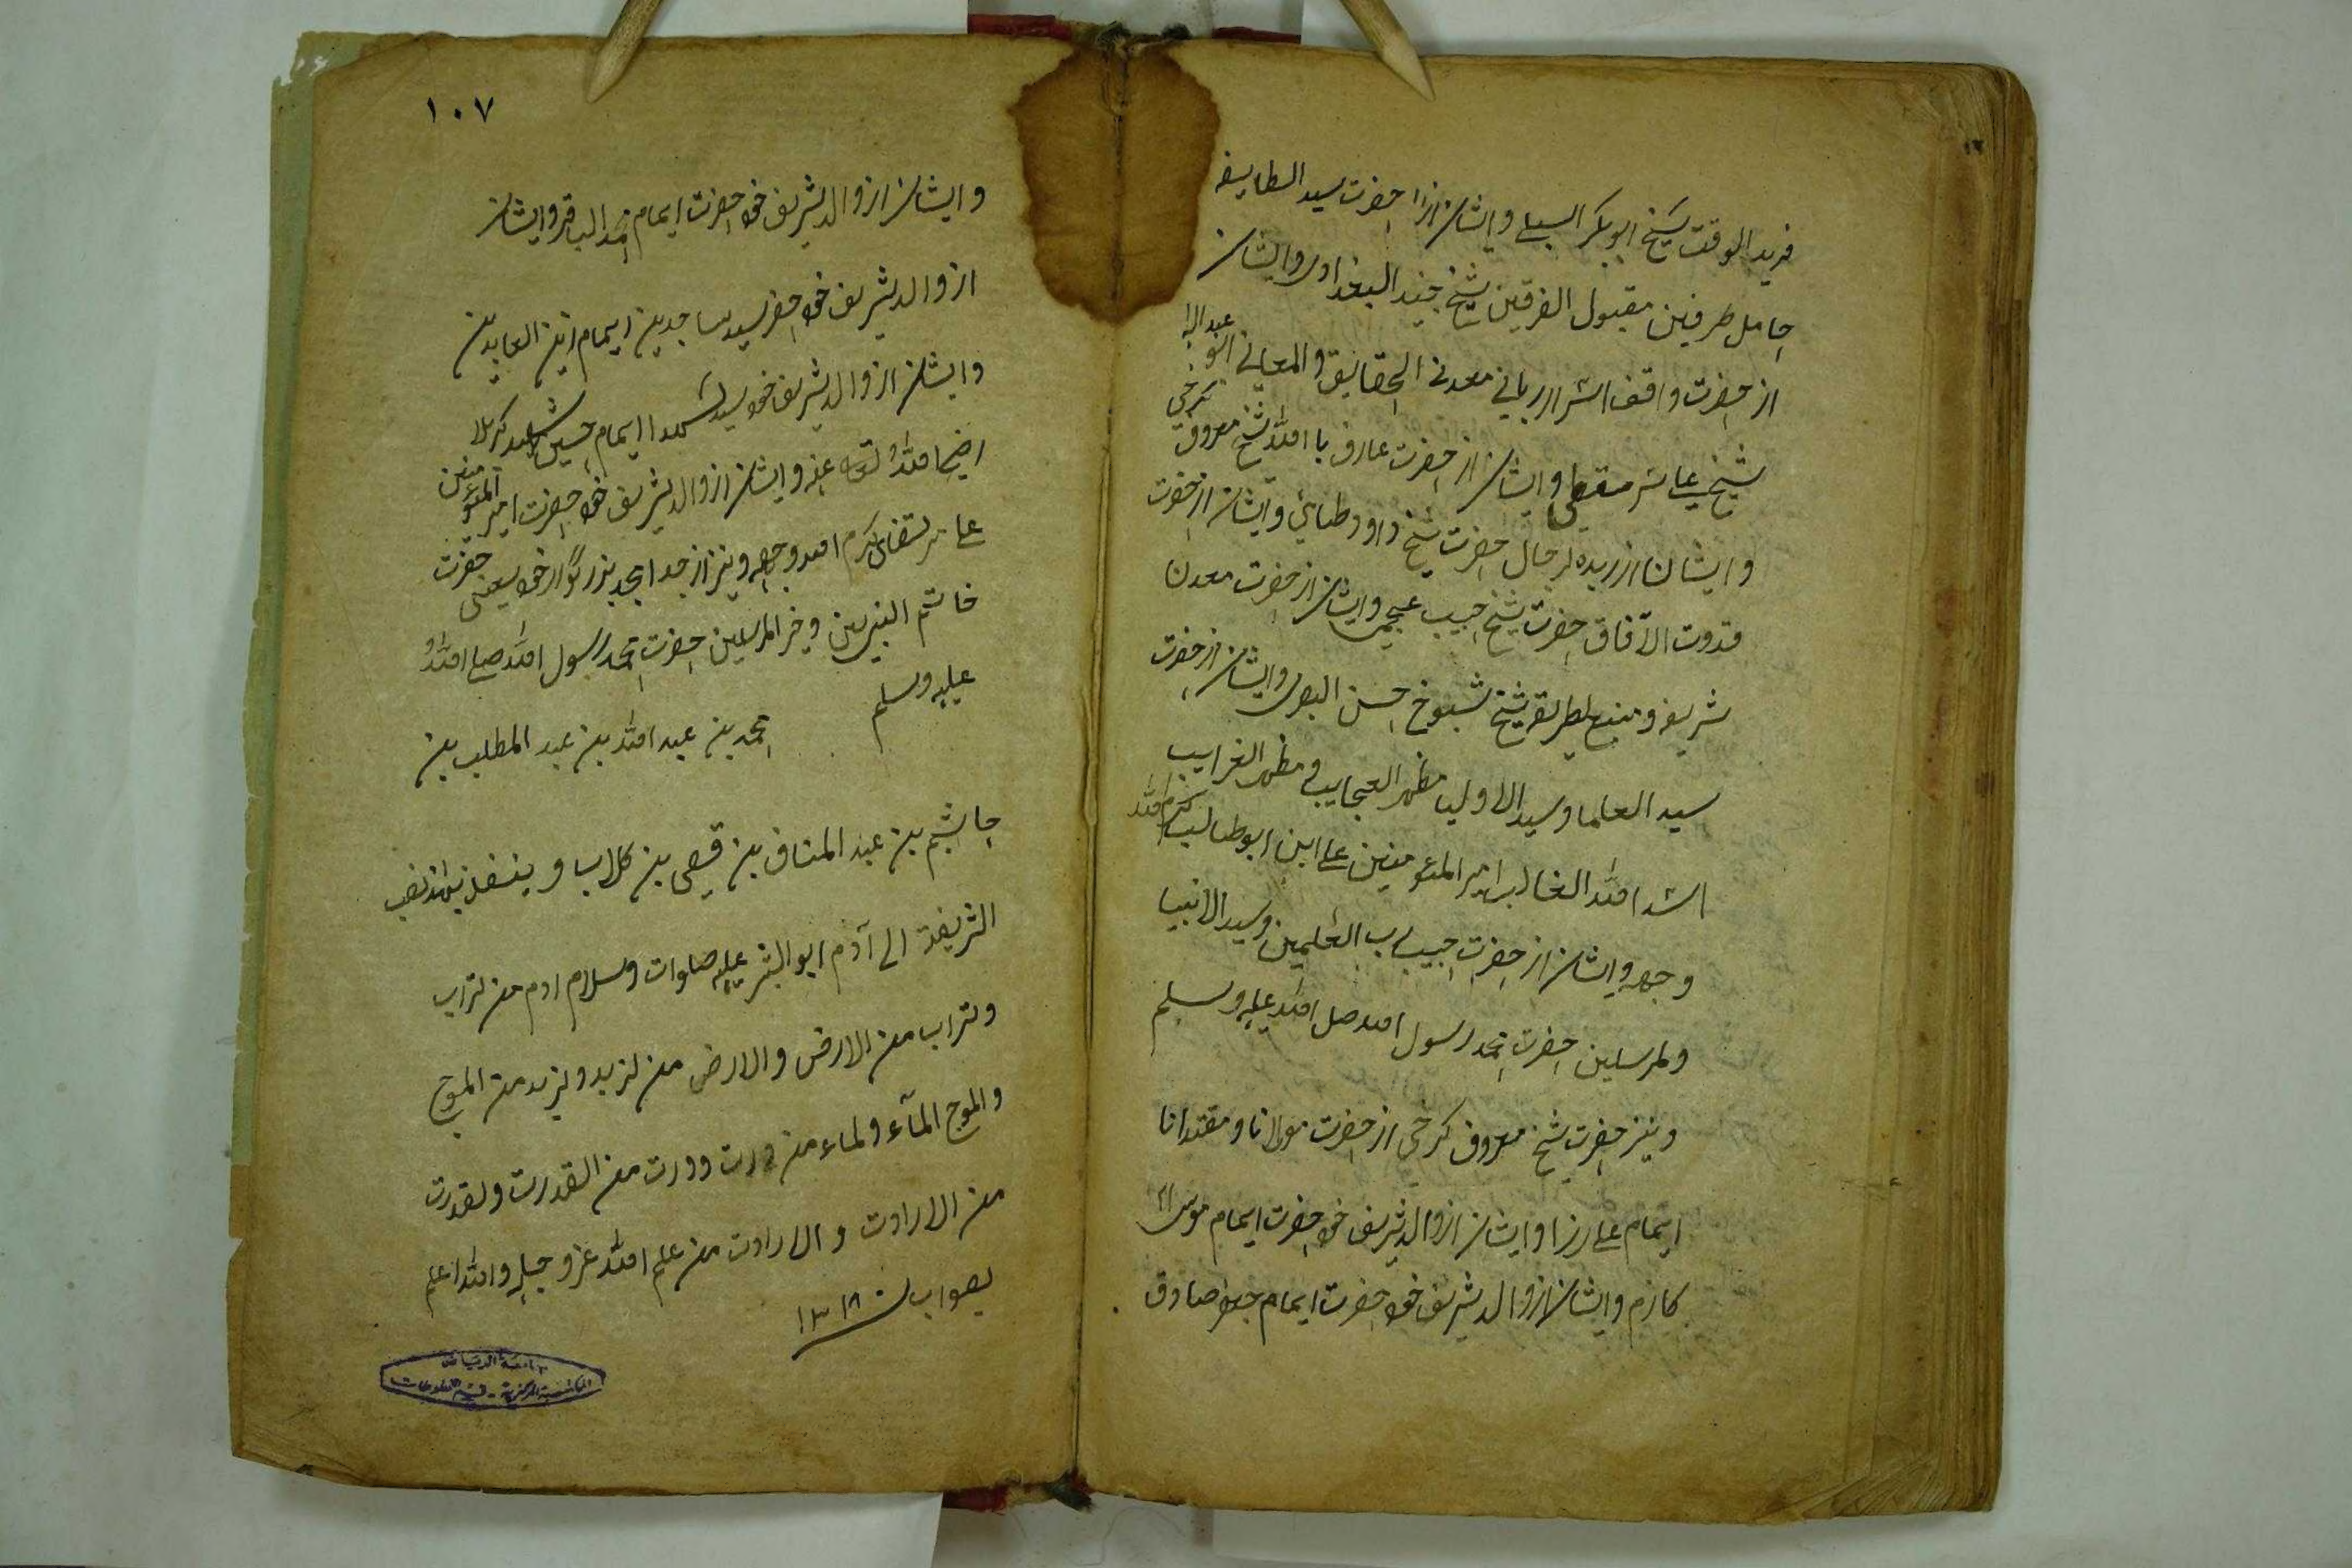 فرید الوقت شیخ ابوبکر السبلے وایشان از حضرت سید الطایفه
حامل طرفین مقبول الفرقین شیخ جنید البغداوی وایشان
از حضرت واقف اسرار ربانی معدن الحقایق والمعانی ابو عبد الله
شیخ سری سقطی وایشان از حضرت عارف با الله شیخ معروف کرخی
وایشان از زبده لرجال حضرت شیخ داوود طائی وایشان از حضرت
قدوت الآفاق حضرت شیخ حبیب عجمی وایشان از حضرت معدن
شریف و منبع لطریقه شیخ شیوخ حسن البصری وایشان از حضرت
سید العلما وسید الاولیا مظهر العجایب و مظهر الغرایب
اسد الله الغالب امیر المئومنین علی ابن ابوطالب کرم الله
وجهه وایشان از حضرت حبیب رب العلمین وسید الانبیا
ولمرسلین حضرت محمد رسول الله صل الله علیه وسلم
ونیز حضرت شیخ معروف کرخی از حضرت مولانا ومقتدانا
ایمام علی رزا وایشان از والد شریف خود حضرت ایمام موسی
کازم وایشان از والد شریف خود حضرت ایمام جعفر صادق
١٠٧
وایشان از والد شریف خود حضرت ایمام محمد الباقر وایشان
از والد شریف خود حضرت سید ساجدین ایمام زین العابدین
وایشان از والد شریف خود سید شهدا ایمام حسین شهید کربلا
رضی الله تعالی عنه وایشان از والد شریف خود حضرت امیر المئومنین
علی مرتضی کرم الله وجهه ونیز از جد امجد بزرگوار خود یعنی حضرت
خاتم النبیین وخر المرسلین حضرت محمد رسول الله صلی الله
علیه وسلم محمد بن عبد الله بن عبد المطلب بن
حاشم بن عبد المناف بن قصی بن کلاب و
الشریفة الی آدم ابو البشر علیه صلوات وسلام ادم من لتراب
ولتراب من الارض والارض من لزبد ولزبد من الموج
والموج المآء ولماء من درت ودرت من القدرت ولقدرت
من الارادت والارادت من علم الله عز وجل والله اعلم
بصواب سنه ١٣١٨
جامعة الرياض
المكتبة المركزية - قسم المخطوطات